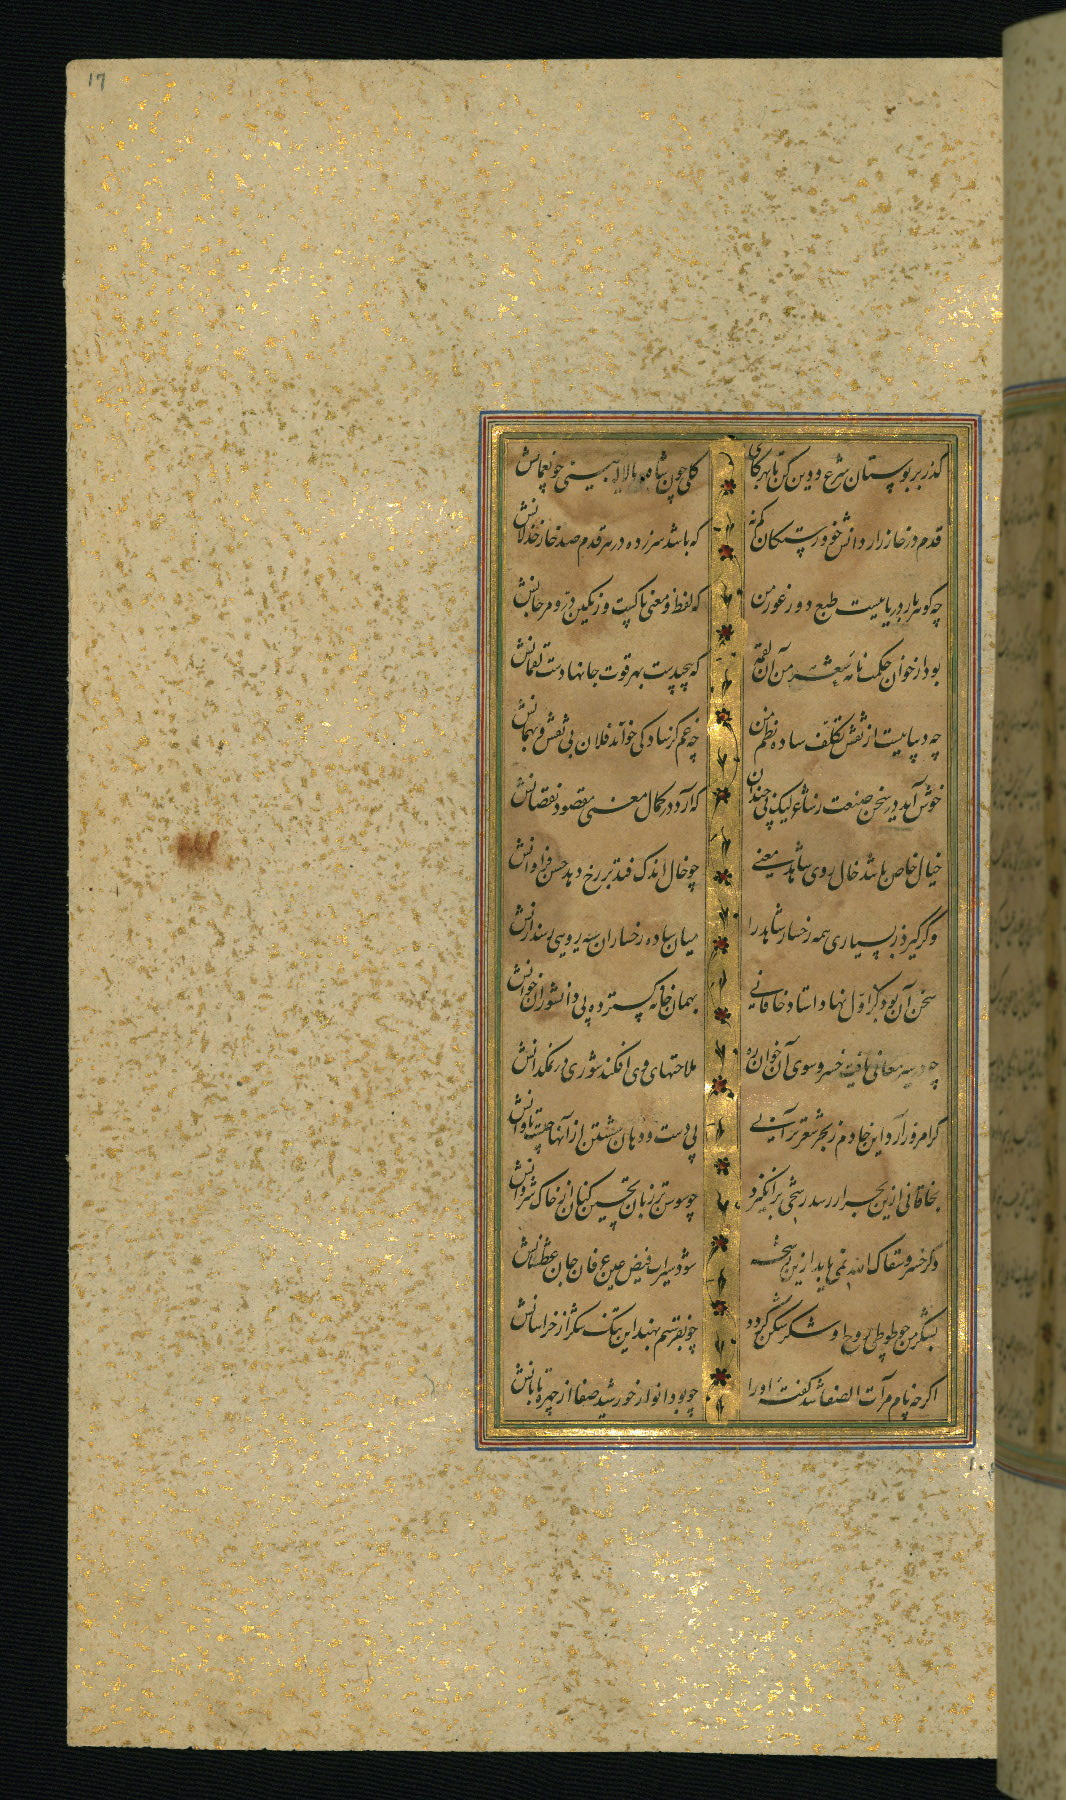 17
گذر بر بوستان شرع و دین کن تا بهر گامی
گلی چون شاه بالا بینی چو نعمانش
قدم در خارزار دانش خود رستگان کم نه
که باشد سر زده در هر قدم صد خار خذلانش
چه گوهربار دریاییست طبع دور غور من
که لفظ و معنی پاکست و رنگین در و مرجانش
بود از خوان حکمت نامه شعر من آن لقمه
که پیچیدست بهر قوت جانها دست لقمانش
چه دیباییست از نقش تکلف ساده نظم من
چه غم گر ساده‌کی خواند فلان بی نقش و بهمانش
خوش آید در سخن صنعت ز شاعر لیک نی چندان
که آرد در کمال معنی مقصود نقصانش
خیال خاص باشد خال روی شاهد معنی
چو خال اندک فتد بر رخ دهد حسن فراوانش
وگر گیرد ز بسیاری همه رخسار شاهد را
میان ساده رخساران سیه رویی رسد زانش
سخن آن بود کز اول نهاد استاد خاقانی
بمهمانخانه گسترده پی دانشوران خوانش
چه در معانی یافت خسرو سوی آن خوان ره
ملاحتهای وی افکند شوری در نمکدانش
گرامروز آرد این خادم ز بحر شعر تر آبی
پی دست و دهان شستن از آنها چیست تاوانش
بخاقانی ازین بحر ار رسد رشحی برانگیزد
چو سوسن تر زبان تحسین کنان از خاک شروانش
وگر خسرو سقاک الله نمی یابد ازین رشحه
شود سیراب فیض عین عرفان جان عطشانش
بشکر من چو طوطی روح او شکر شکن گردد
چو بفرستم بهند این تنگ شکر از خراسانش
اگرچه نام مرآت الصفا شد گفته او را
چو بود انوار خورشید صفا از چهره تابانش